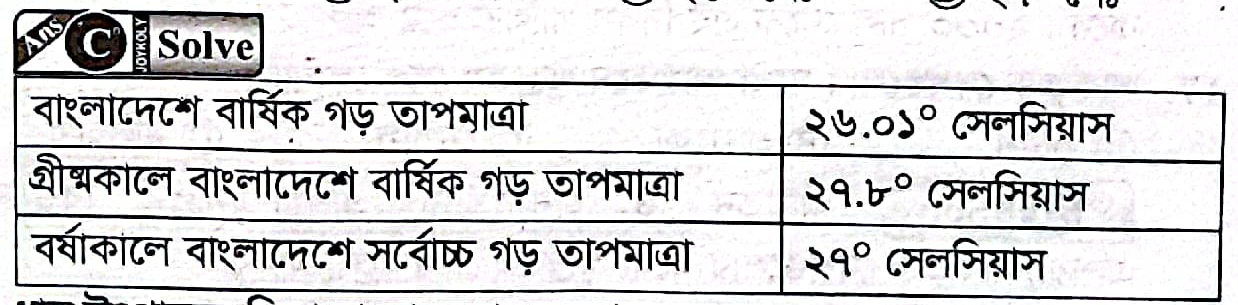 Ans C JOYKOLY Solve
বাংলাদেশে বার্ষিক গড় তাপমাত্রা ২৬.০১° সেলসিয়াস
গ্রীষ্মকালে বাংলাদেশে বার্ষিক গড় তাপমাত্রা ২৭.৮° সেলসিয়াস
বর্ষাকালে বাংলাদেশে সর্বোচ্চ গড় তাপমাত্রা ২৭° সেলসিয়াস